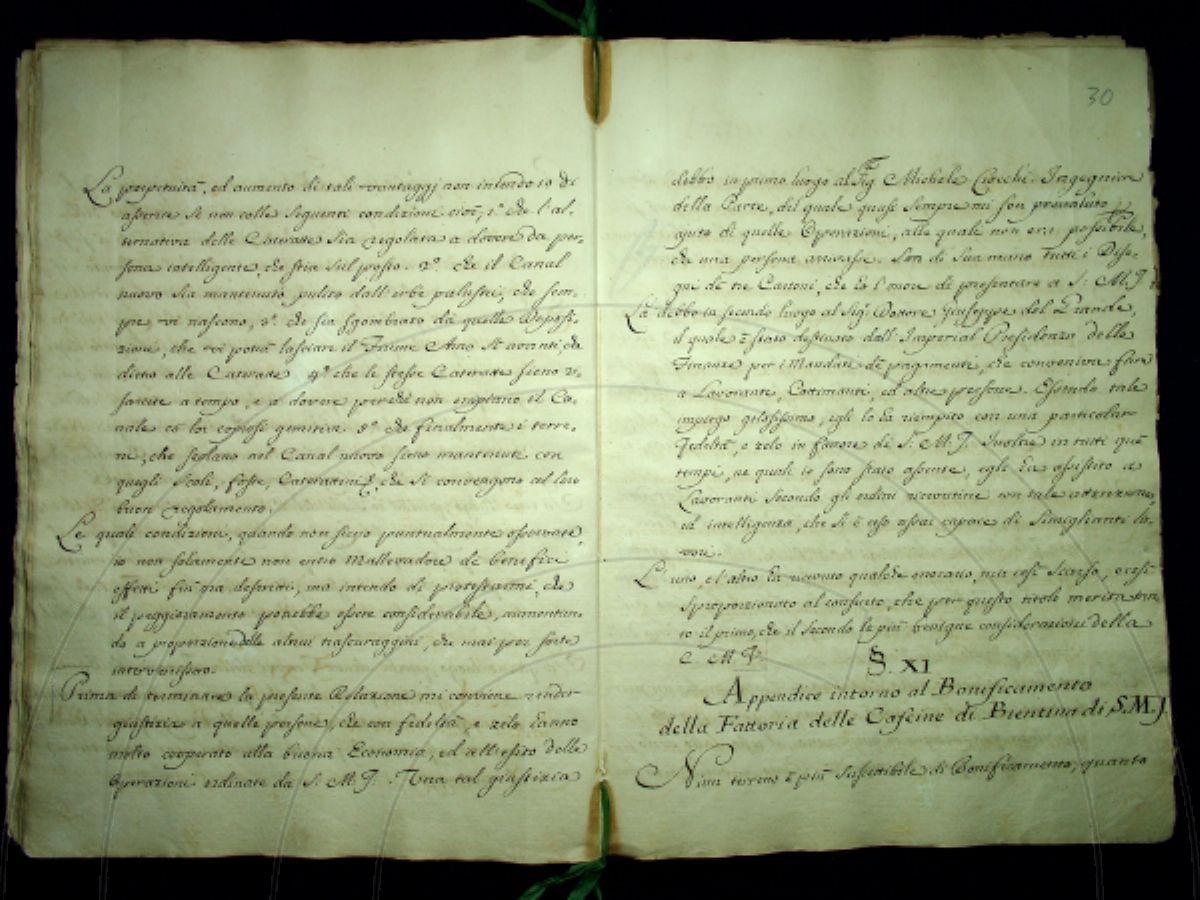 La perpetuità, ed aumento di tali vantaggj non intendo io di
asserire se non colle seguenti condizioni cioè, 1.º che l'al-
ternativa delle Cateratte sia regolata a dovere da per-
sona intelligente, che stia sul posto. 2.º che il Canal
nuovo sia mantenuto pulito dall'erbe palustri, che sem-
pre vi nascono, 3.º che sia sgombrato da quelle Deposi-
zione, che vi potrà lasciare il Fiume Arno
ditto alle Cateratte 4.º che le stesse Cateratte sieno ri-
sarcite a tempo, e a dovere perchè non empiano il Ca-
nale colle copiose gemitìa 5.º che finalmente i terre-
ni, che scolano nel Canal nuovo sieno mantenuti con
quegli Scoli, fosse, Caterattini, che si convengono al loro
buon regolamento.
Le quali condizioni, quando non sieno puntualmente osservate,
io non solamente non entro Mallevadore de' benefici
effetti fin qua descritti, ma intendo di protestarmi, che
il peggioramento potrebbe essere considerabile, aumentan-
do a proporzione delle altrui trascuraggini, che mai per sorte
intervenissero.
Prima di terminare la presente Relazione mi conviene render
giustizia a quelle persone, che con fedeltà, e zelo hanno
molto cooperato alla buona Economia, ed all'esito delle
Operazioni ordinate da S. M. J. Una tal giustizia
30
debbo in primo luogo al Sig Michele Ciocchi Ingegniere
della Parte, del quale quasi sempre mi son prevaluto in
ajuto di quelle Operazioni, alle quali non era possibile,
che una persona arrivasse. Son di sua mano tutti i Dise-
gni de' tre Cartoni, che ho l'onore di presentare a S: M. J
La debbo in secondo luogo al Sig. Dottore Giuseppe del Grande,
il quale è stato destinato dall'Imperial Presidenza delle
Finanze per i Mandati de' pagamenti, che conveniva fare
a Lavoranti, Cottimanti, ed altre persone. Essendo tale
impiego gelosissimo, egli lo ha riempito con una particolare
fedeltà, e zelo in favore di S. M. J. Inoltre in tutti que'
tempi, ne quali io sono stato assente, egli ha assistito a
Lavoranti secondo gli ordini ricevutine con tale attenzione,
ed intelligenza, che si è reso assai capace di simiglianti la-
vori.
L'uno, e l'altro ha ricevuto qualche onorario, ma così scarso, e così
sproporzionato al consueto, che per questo titolo merita tan-
to il primo, che il secondo le più benigne considerazioni della
C. M. V.
§. XI
Appendice intorno al Bonificamento
della Fattoria delle Cascine di Bientina di S. M. J.
Niun terreno è più suscettibile di Bonificamento, quanto